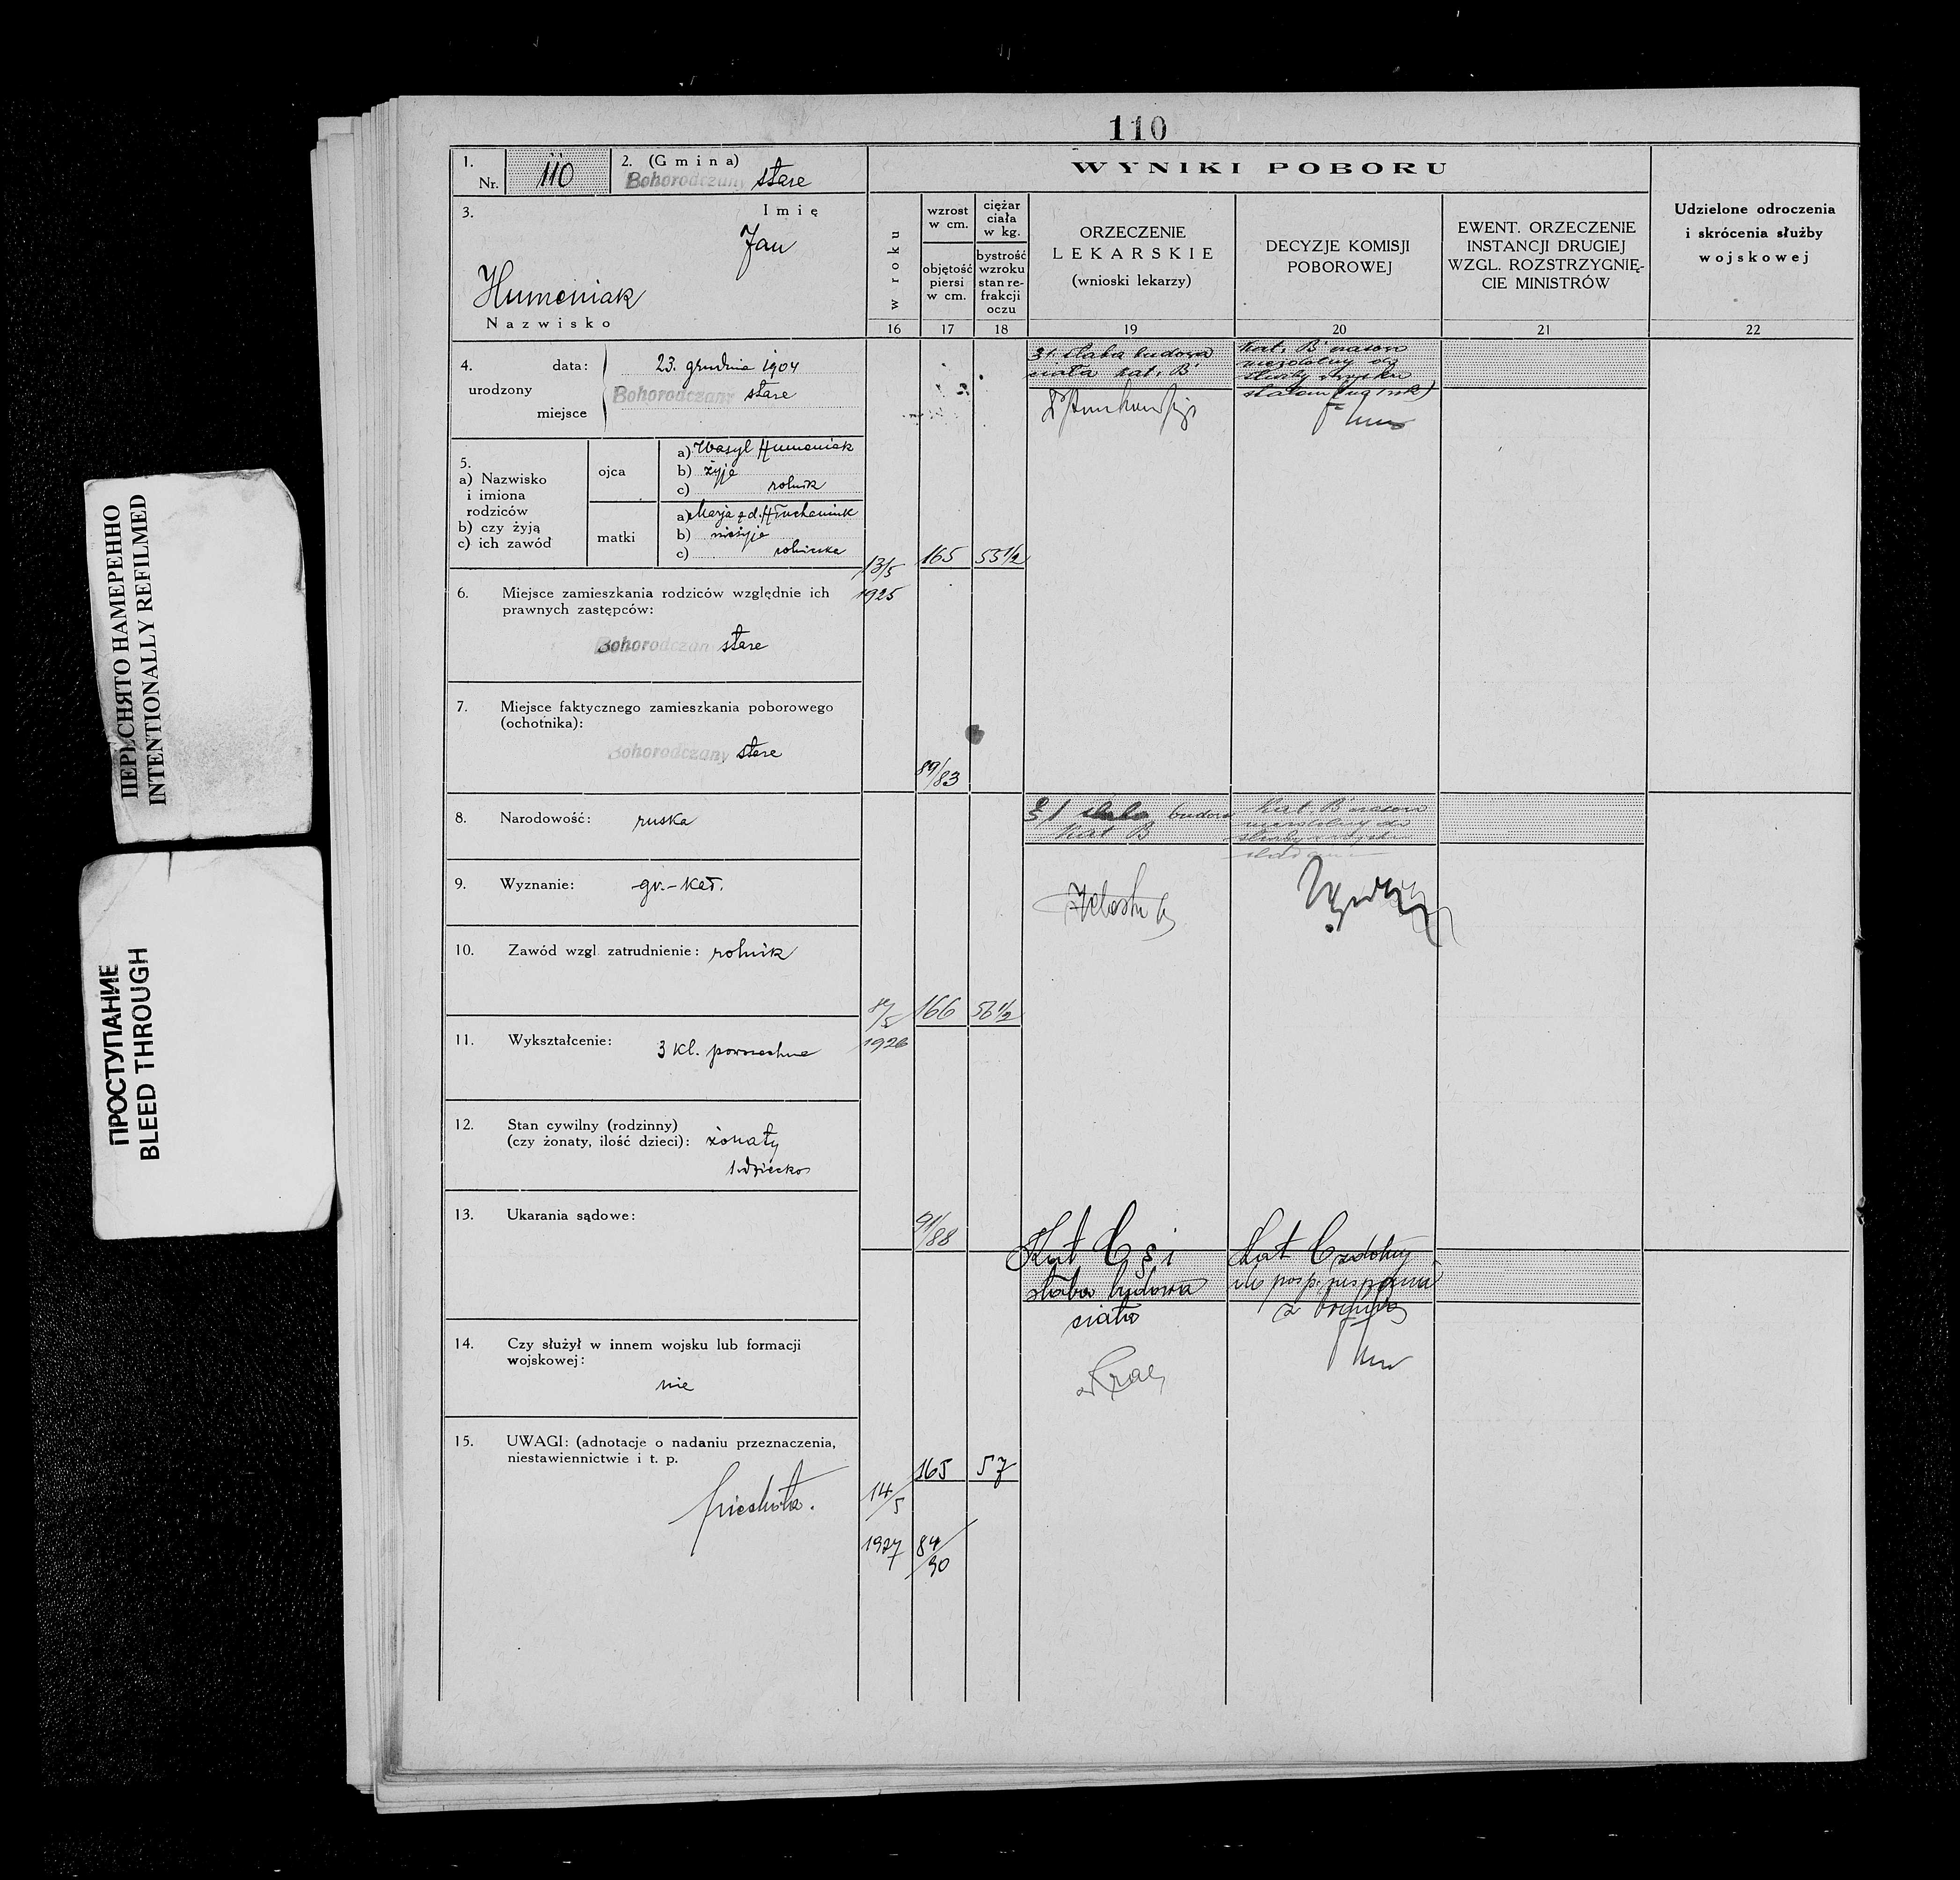 ПЕРЕСНЯТО НАМЕРЕННО
INTENTIONALLY REFILMED
ПРОСТУПАНИЕ
BLEED THROUGH
110
1.
Nr. 110
2. (Gmina)
Bohorodczany stare
3. Imię
Jan
Humeniak
Nazwisko
4. urodzony
data: 23. grudnia 1904
miejsce Bohorodczany stare
5.
a) Nazwisko
i imiona
rodziców
b) czy żyją
c) ich zawód
ojca
a) Wasyl Humeniak
b) żyje
c) rolnik
matki
a) Marja z d.
b) nieżyje
c) rolniczka
6. Miejsce zamieszkania rodziców względnie ich
prawnych zastępców:
Bohorodczan stare
7. Miejsce faktycznego zamieszkania poborowego
(ochotnika):
Bohorodczany stare
8. Narodowość: ruska
9. Wyznanie: gr.-kat.
10. Zawód wzgl. zatrudnienie: rolnik
11. Wykształcenie: 3 kl. powszechne
12. Stan cywilny (rodzinny)
(czy żonaty, ilość dzieci): żonaty
1 dziecko
13. Ukarania sądowe:
14. Czy służył w innem wojsku lub formacji
wojskowej:
nie
15. UWAGI: (adnotacje o nadaniu przeznaczenia,
niestawiennictwie i t. p.
piechota.
WYNIKI POBORU
w roku
wzrost
w cm.
objętość
piersi
w cm.
ciężar
ciała
w kg.
bystrość
wzroku
stan re-
frakcji
oczu
ORZECZENIE
LEKARSKIE
(wnioski lekarzy)
DECYZJE KOMISJI
POBOROWEJ
EWENT. ORZECZENIE
INSTANCJI DRUGIEJ
WZGL. ROZSTRZYGNIĘ-
CIE MINISTRÓW
Udzielone odroczenia
i skrócenia służby
wojskowej
16 17 18 19 20 21 22
słaba budowa
ciała kat. B
Kat. B czasowo
niezdolny do
służby wojsko
13/5
1925
165
53 1/2
89/83
słaba budowa
Kat B
Kat B czasowo
niezdolny do
służby
1926
166
56 1/2
91/88
Kat C § 1
słaba budowa
ciała
Kat C zdolny
do posp. ruszenia
z bronią
14/5
1927
165
57
84/90